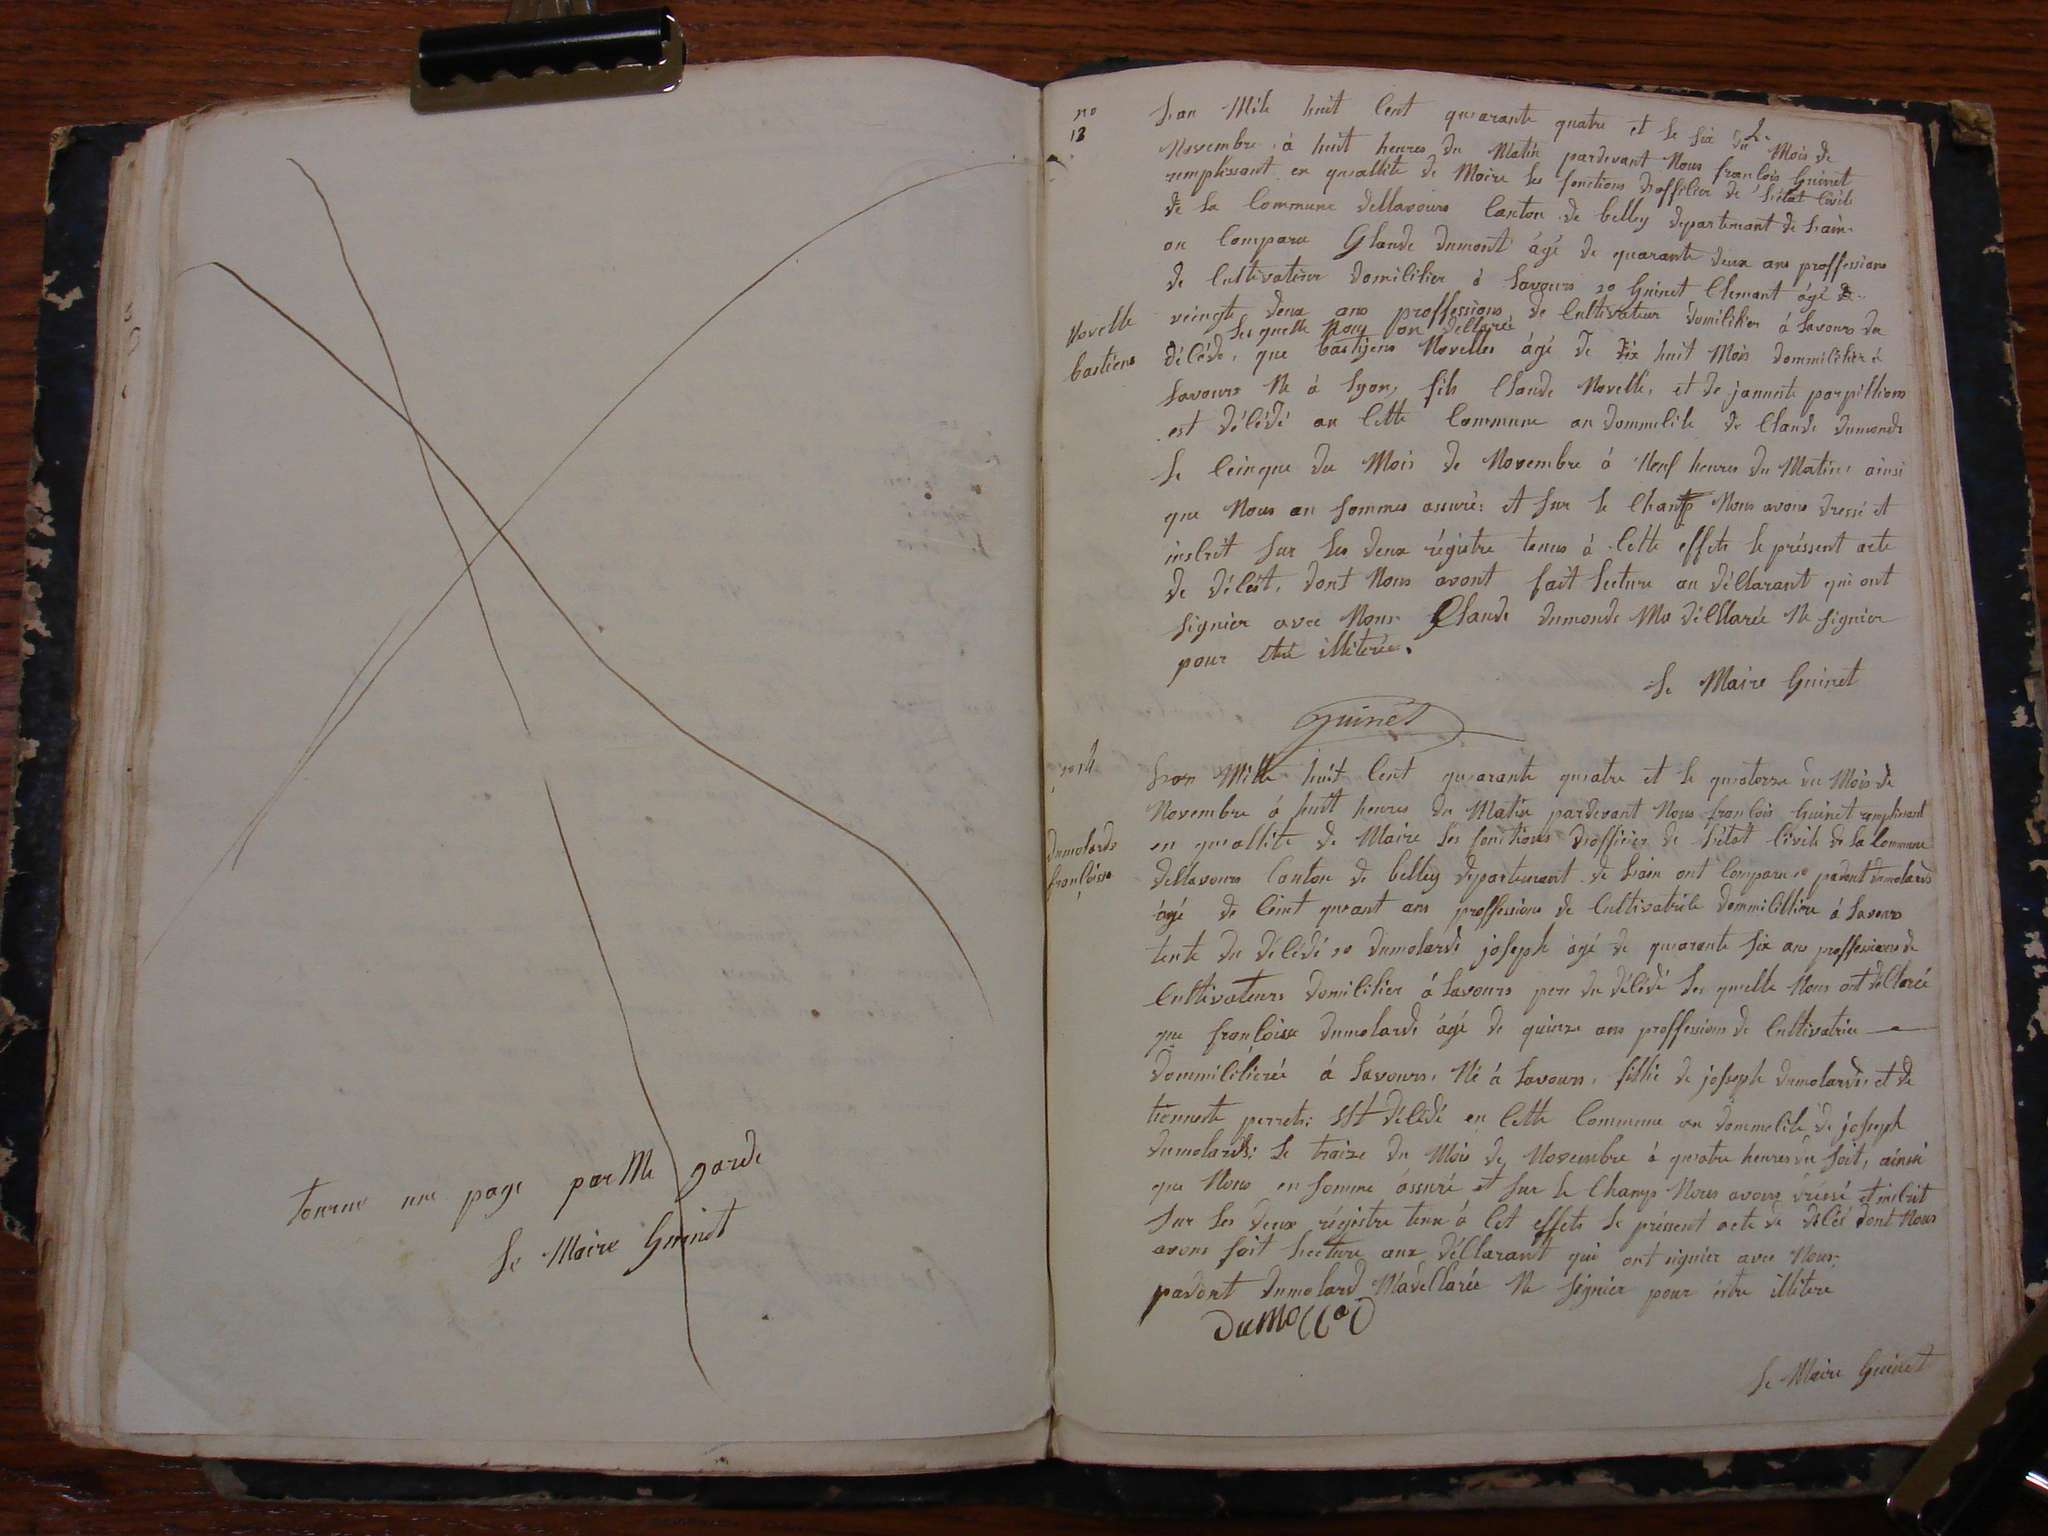 tourne une page par Me garde
Le Maire Guinet
no
13
Lan Mile huit Cent quarante quatre et le six du Mois de
Novembre à huit heures du Matin pardevant Nous francois Guinet
remplissant en quallite de Maire les fonctions d'officier de L'état Civile
de la Commune dellavours Canton de belley departement de Lain
on Comparu Glaude dumont âgé de quarante deux ans proffessions
de Cultivateur domicilier à Lavours 20 Guinet Clemant âgé de
veingte deux ans proffessions de Cultivateur domicilier à Lavours du
Les quelle Nous on dellarée
Novelle
bastiens
décéde, que bastijens Novelles âgé de dix huit Mois dommicilier à
Lavours Ne à Lyon, fils Claude Novelle, et de jannete parpillions
est décédé an Cette Commune an dommicile de Claude dumonde
le Ceinque du Mois de Novembre à Neuf heures du Matin, ainsi
que Nous an sommes assuré: et sur le Champ Nous avons dressé et
inscrit sur les deux régistre tenus à Cette effets le préssent acte
de décést, dont Nous avont fait Lecture au déClarant qui ont
signier avec Nous Claude dumonde Ma déCllarée Ne signier
pour être illiterée.
Le Maire Guinet
Guinet
no 14
Lan Mille huit Cent quarante quatre et le quatorze du Mois de
Novembre à huit heures du Matin pardevant Nous francois Guinet remplissant
dumolards
francoisse
en quallite de Maire Les fonctions d'officier de L'état Civile de La Commune
dellavours Canton de belley departement de Lain ont Comparu 10 padont dumolards
âgé de Ceint quant ans proffessions de Cultivatrice dommicilliere à Lavours
tente du décédé 20 dumolards joseph âgé de quarante six ans proffessions de
Cultivateurs domicilier à Lavours pere du décédé Les quelle Nous ont déClarée
que francoise dumolards âgé de quinze ans proffessions de Cultivatrice
dommicilierée à Lavours, Né à Lavours, fillie de joseph dumolards, et de
tiennete perrets: est décédé en Cette Commune an dommicile de joseph
dumolards: le traize du Mois de Novembre à quatre heures du soit, ainsi
que Nous en somme assuré et sur le Champ Nous avons dréssé et inscrit
sur les deux régistre tenu à Cet effets le préssent acte de décés dont Nous
avons fait Lecture aux déClarant qui ont signier avec Nous:
padont dumolard M'adellarée Ne signier pour éstre illitere
DuMollard
Le Maire Guinet